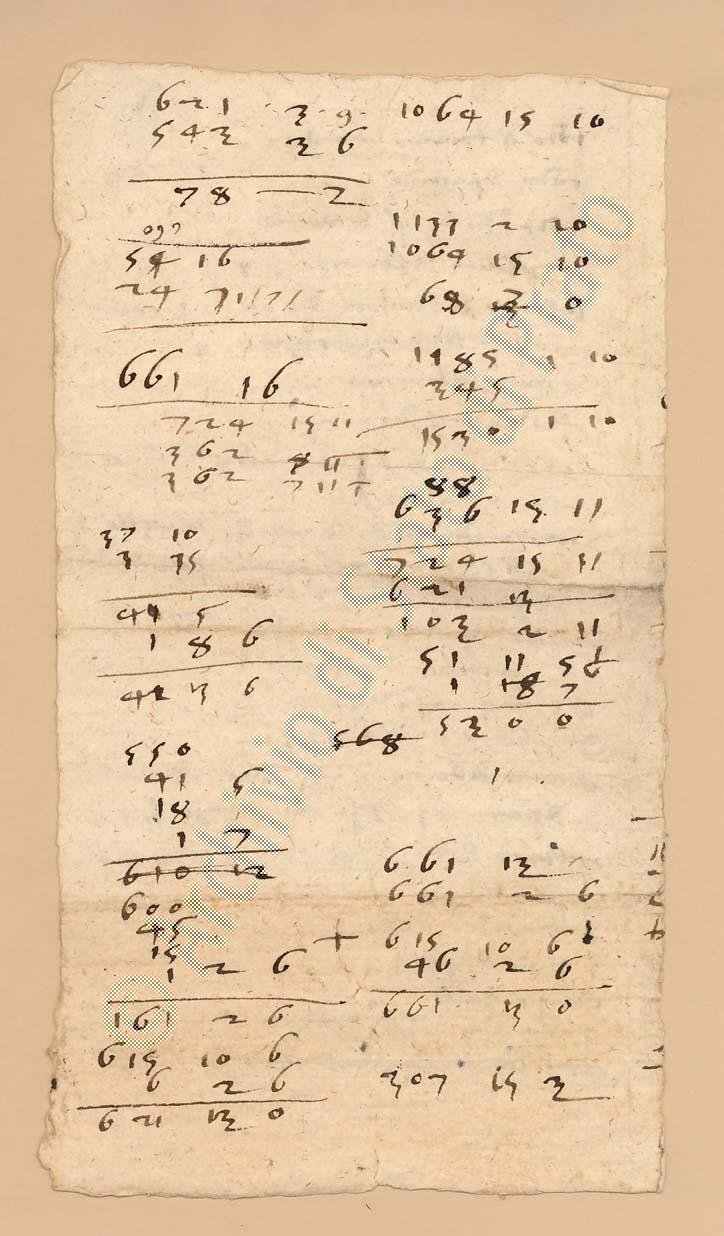 621 3 9
543 3 6
78 — 2
54 16
24
661 16
724 13 11
362 8 11
362 7 11
37 10
3 15
41 5
1 8 6
42 13 6
550
41 5
18
1 7
610 12
600
45
15
1 2 6
161 2 6
615 10 6
6 2 6
621 13 0
1064 15 10
1133 2 10
1064 15 10
68 3 0
1185 1 10
345
1530 1 10
88
636 13 11
724 15 11
621 13
103 2 11
51 11 5
1 8 7
53 0 0
568
1
661 13
661 2 6
+ 615 10 6
46 2 6
661 13 0
307 15 3
© Archivio di Stato di Prato